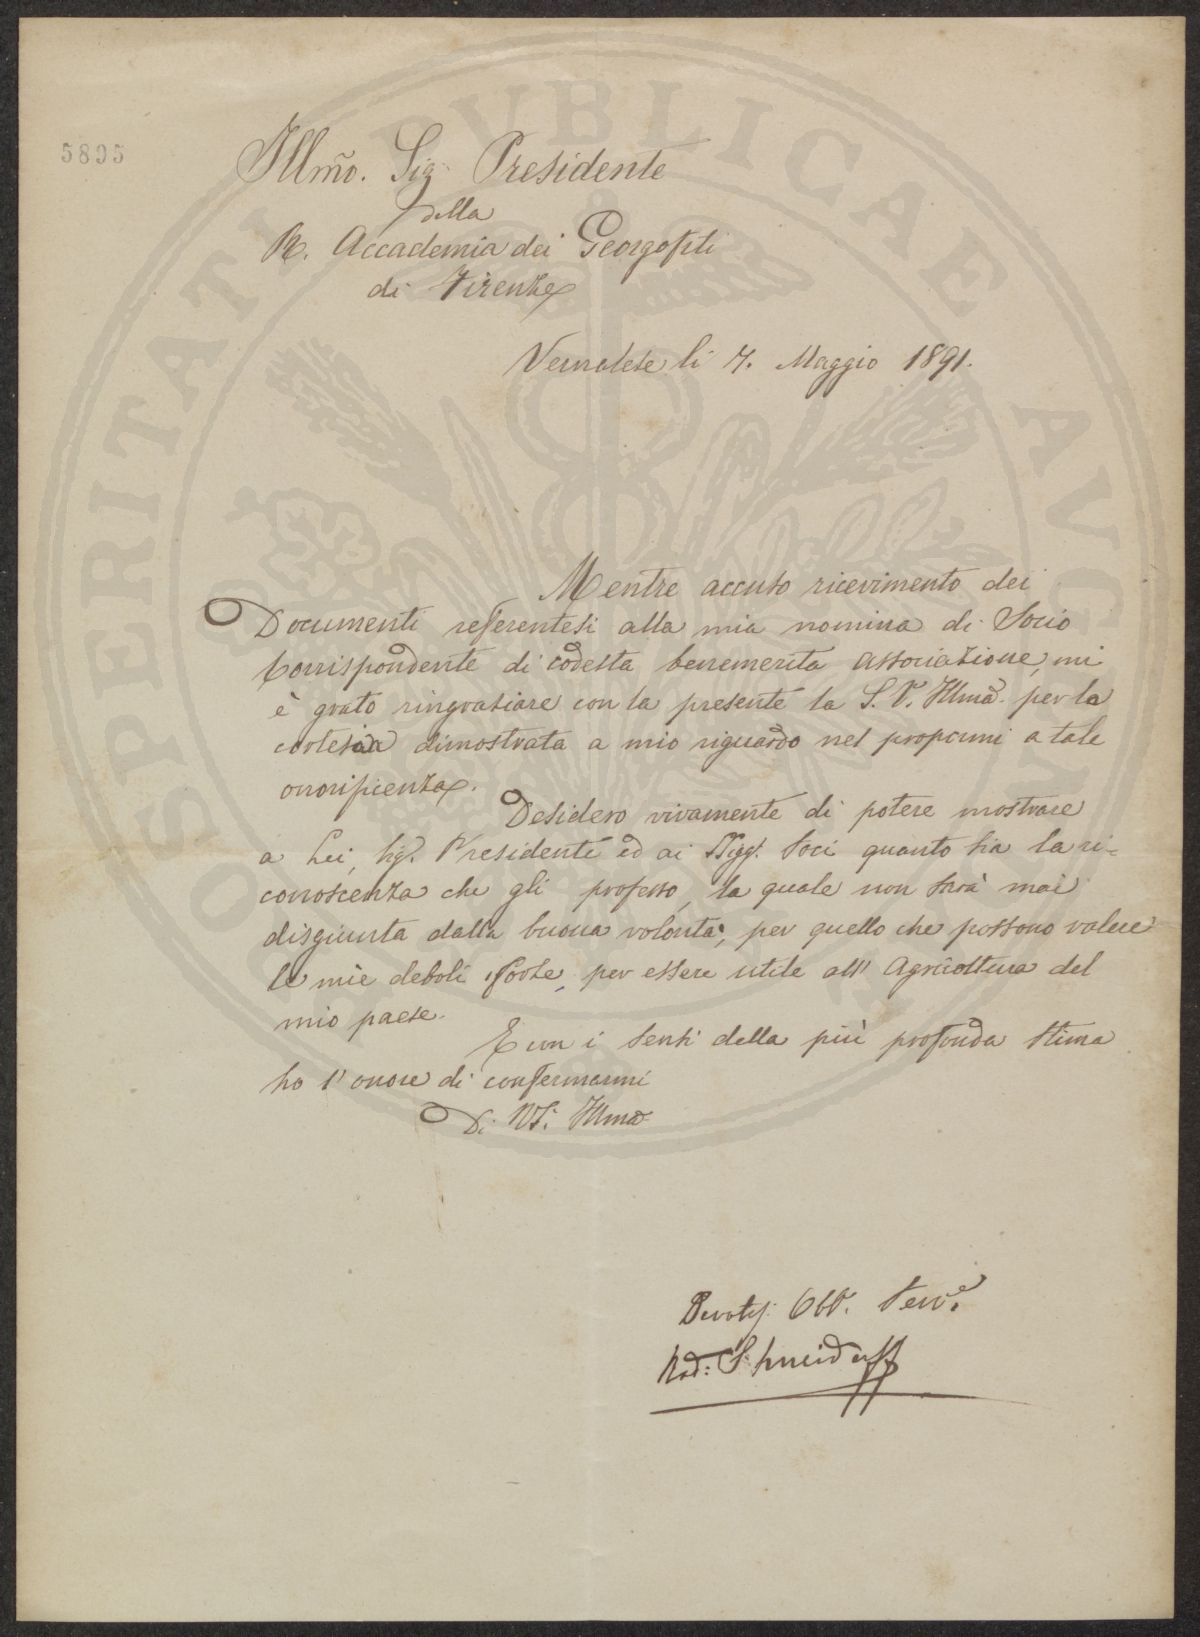 5895
Illmo. Sig. Presidente
della
R. Accademia dei Georgofili
di Firenze
Vernalese li 7. Maggio 1891.
Mentre accuso ricevimento dei
Documenti referentesi alla mia nomina di Socio
Corrispondente di codesta benemerita associazione, mi
è grato ringraziare con la presente la S. V. Illma. per la
cortesia dimostrata a mio riguardo nel propormi a tale
onorificenza.
Desidero vivamente di potere mostrare
a Lei, Sig. Presidente ed ai Sigg. Soci quanto sia la ri=
conoscenza che gli professo, la quale non sarà mai
disgiunta dalla buona volontà, per quello che possono valere
le mie deboli forze, per essere utile all' Agricoltura del
mio paese.
E con i sensi della più profonda stima
ho l' onore di confermarmi
Di V. S. Illma
Devotis. Obb. Serv.e
Rod: Schneiderff
PROSPERITATI PUBLICAE AUGENDAE